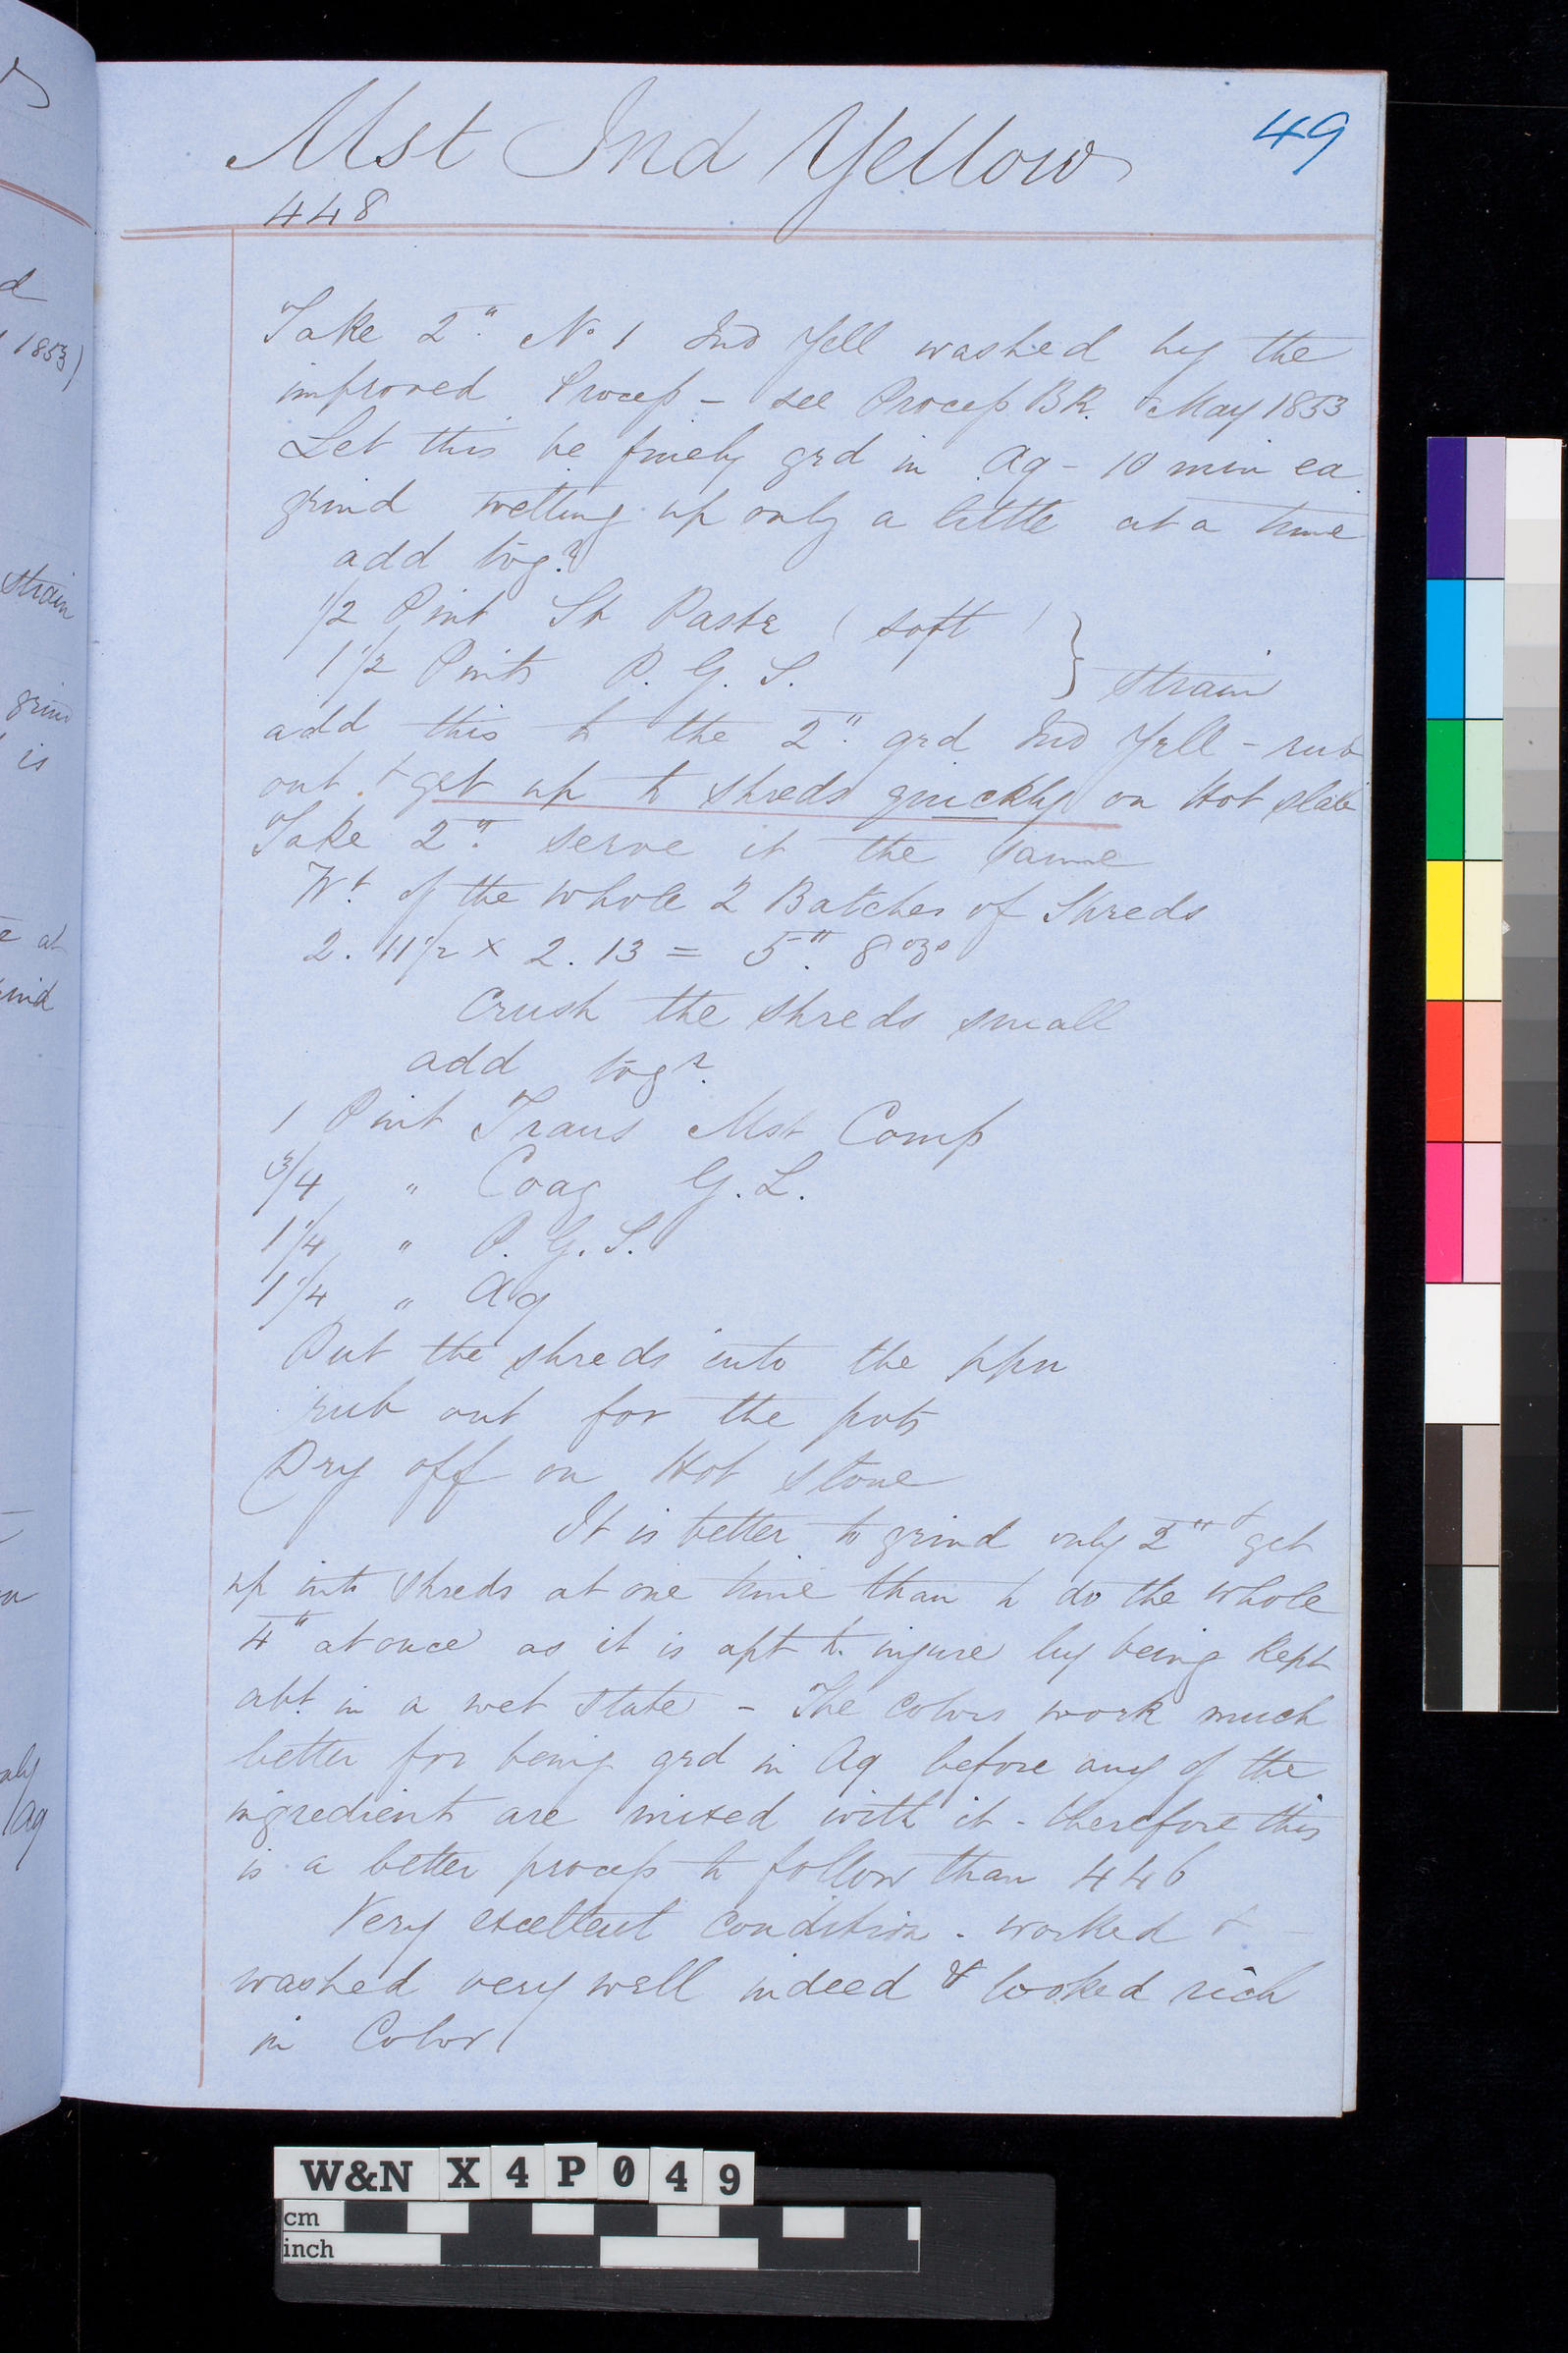 Mst Ind Yellow
49
448
Take 2" No 1 Ind Yell washed by the
improved Process - see Process BR. & May 1853
Let this be finely grd in Aq - 10 min ea
grind wetting up only a little at a time
add togr
1/2 Pint St Paste ( soft )
1 1/2 Pints P. G. S. } strain
add this to the 2" grd Ind Yell - rub
out & get up to shreds quickly on Hot slab
Take 2" serve it the same
Wt of the whole 2 Batches of Shreds
2. 11 1/2 x 2. 13 = 5". 8 ozs
Crush the shreds small
add togr
1 Pint Trans Mst Comp
3/4 " Coag G. L.
1 1/4 " P. G. S.
1 1/4 " Aq
Put the shreds into the ppn
rub out for the pots
Dry off on Hot stone
It is better to grind only 2" & get
up into shreds at one time than to do the whole
4" at once as it is apt to injure by being kept
abt in a wet state - The colors work much
better for being grd in Aq before any of the
ingredients are mixed with it - therefore this
is a better process to follow than 446
Very excellent condition - worked &
washed very well indeed & looked rich
in Color
d
1853)
strain
grind
is
at
Aq
W&N X4P049
cm
inch